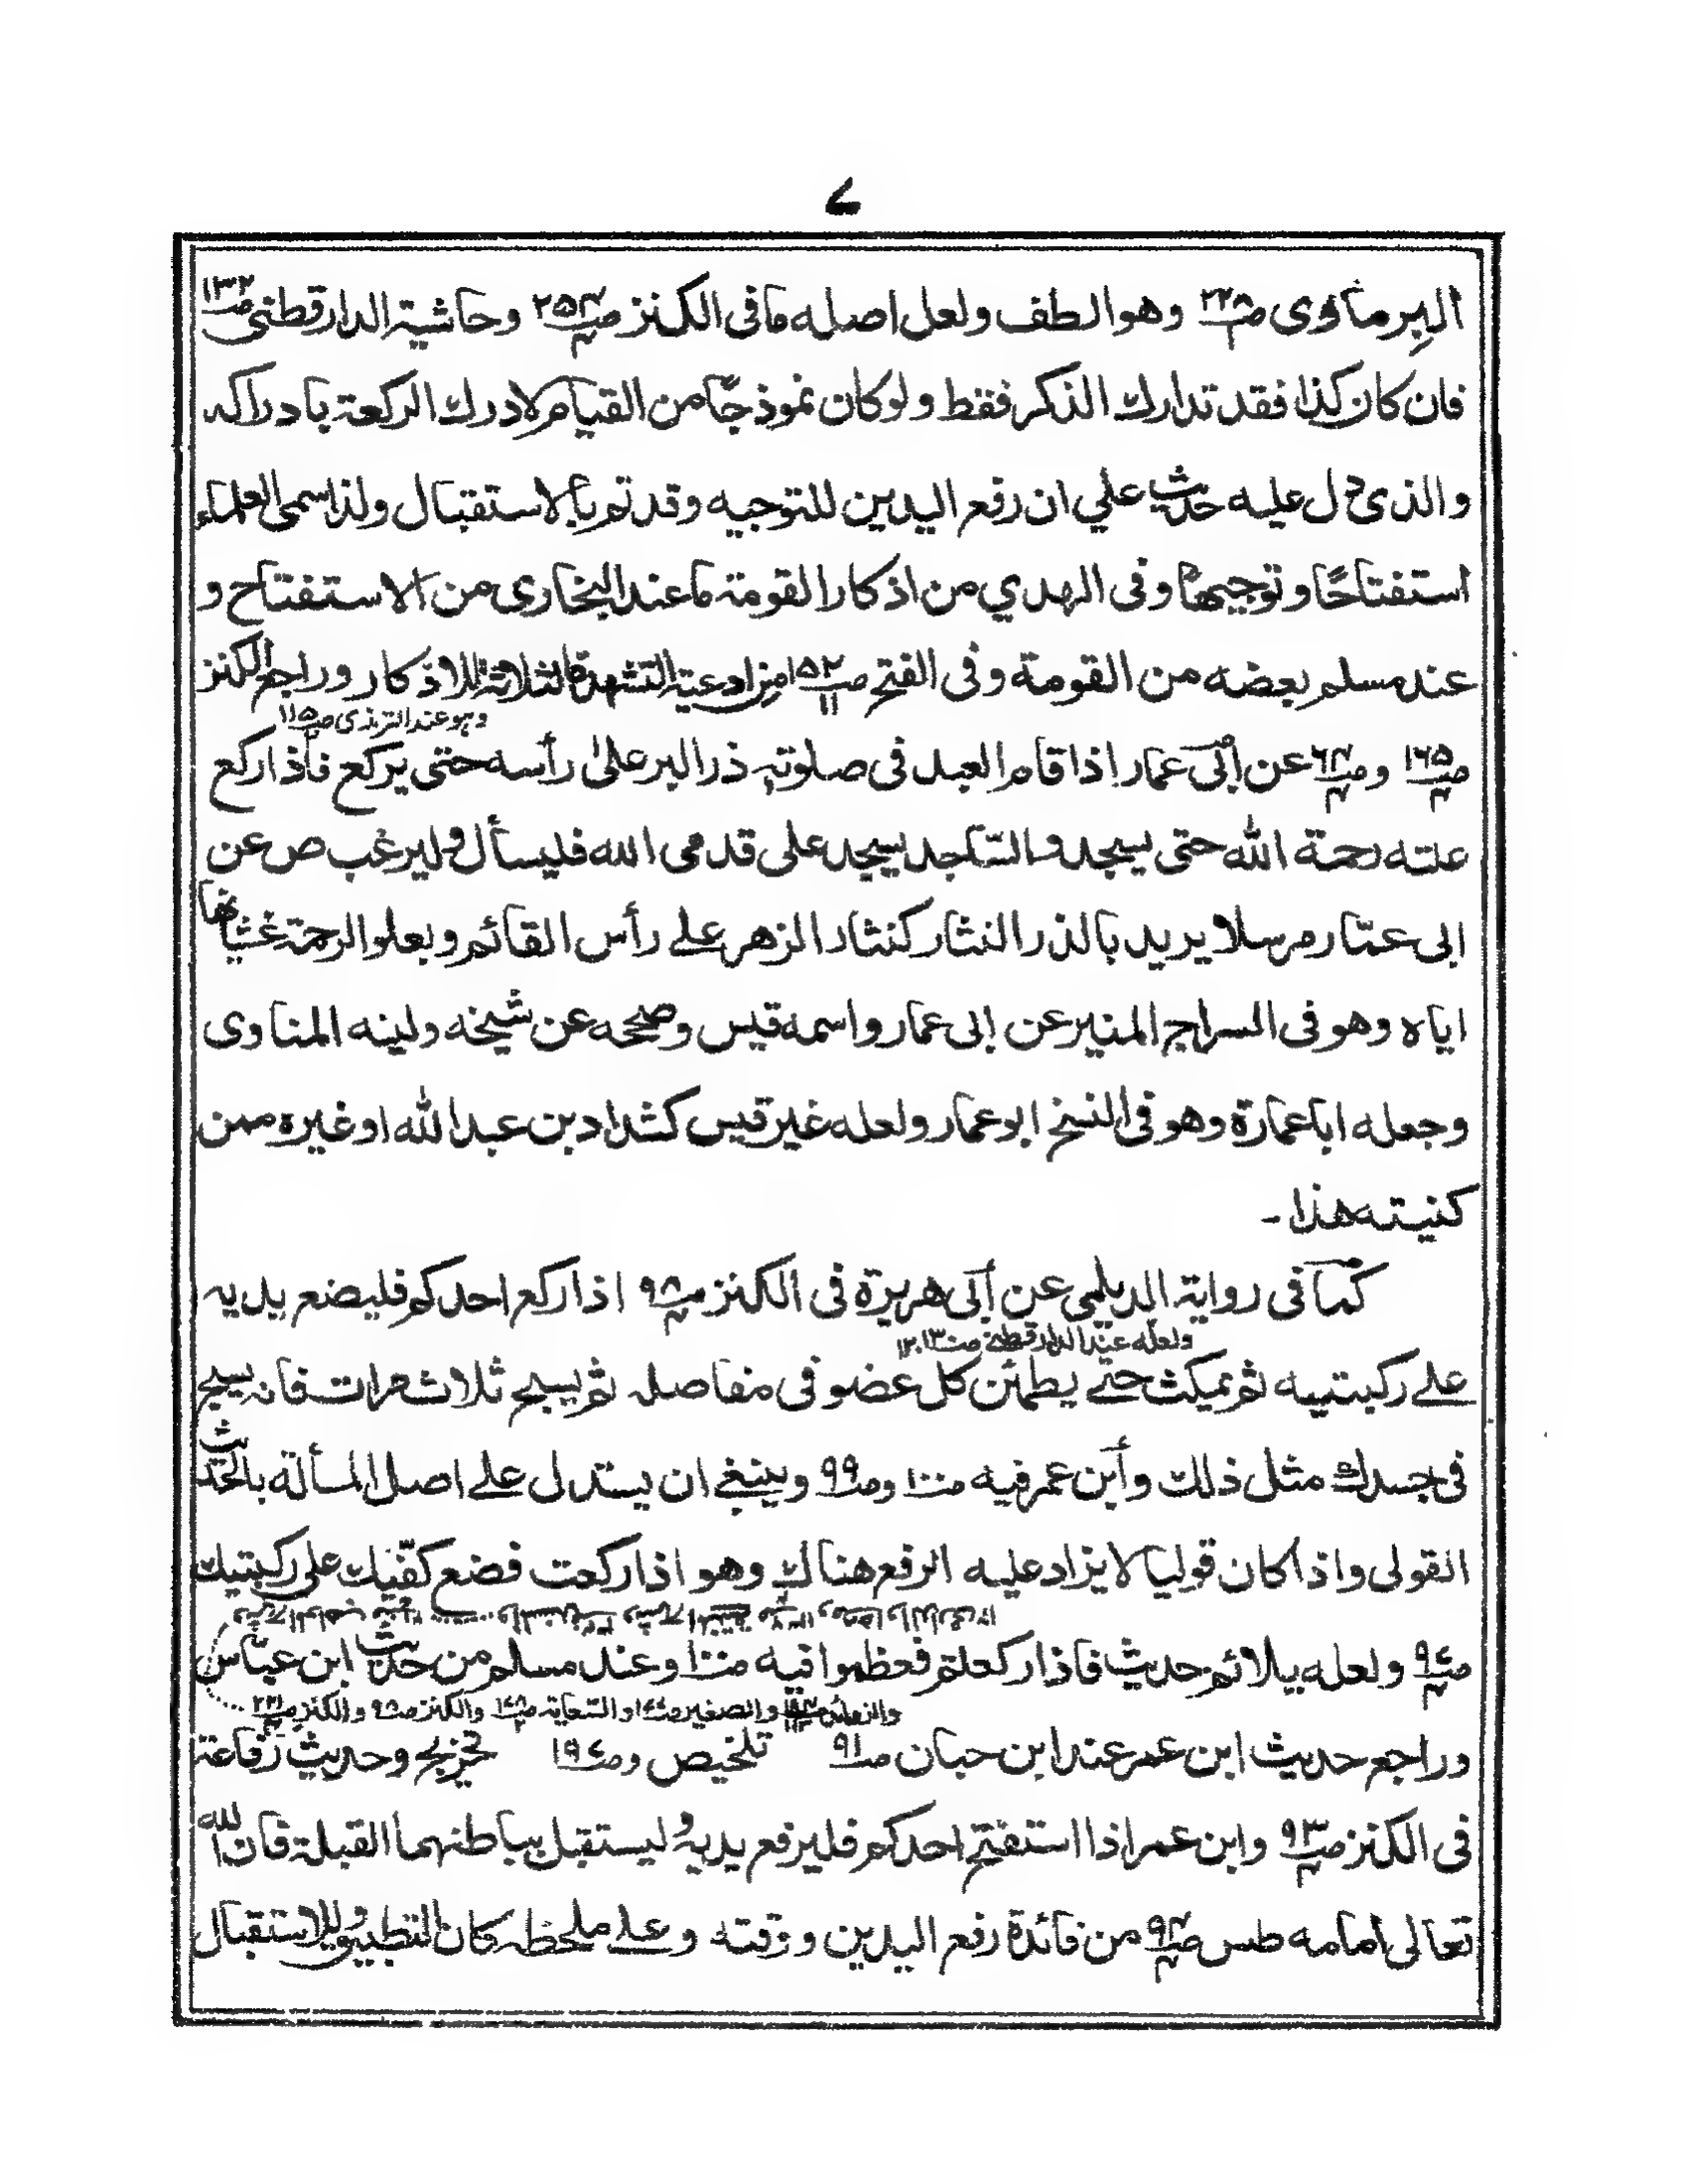 ۷
البرماوى ص۲۲۵/۱ وهو الطف ولعل اصله ما فى الكنز ص۲۵۳/۴ وحاشية الدارقطنى ص۱۳۲
فان كان كذا فقد تدارك الذكر فقط ولو كان نموذجًا من القيام لادرك الركعة بادراكه
والذى دل عليه حديث علي ان رفع اليدين للتوجيه وقد تم بالاستقبال ولذا سمى العلماء
استفتاحًا وتوجيهًا وفى الهدي من اذكار القومة ما عند البخارى من الاستفتاح و
عند مسلم بعضه من القومة وفى الفتح ص۱۵۲/۱۱ من ادعية التشهد فالثلاثة للاذكار وراجع الكنز
وهو عند الترمذى ص۱۱۵
ص۱۶۵/۴ وص۶۴/۴ عن ابى عمار اذا قام العبد فى صلوته ذر البر على رأسه حتى يركع فاذا ركع
علته رحمة الله حتى يسجد والساجد يسجد على قدمى الله فليسأل وليرغب ص عن
ابى عمار مرسلا يريد بالذر النثار كنثار الزهر على رأس القائم وبعلو الرحمة غشيانها
اياه وهو فى السراج المنير عن ابى عمار واسمه قيس وصححه عن شيخه ولينه المناوى
وجعله ابا عمارة وهو فى النسخ ابو عمار ولعله غير قيس كشداد بن عبد الله او غيره ممن
كنيته هذا ۔
كما فى رواية الديلمى عن ابى هريرة فى الكنز ص۹۸/۴ اذا ركع احدكم فليضع يديه
ولعله عند الدارقطنى ص۱۲۰،۱۳
على ركبتيه ثم يمكث حتى يطمئن كل عضو فى مفاصله ثم يسبح ثلاث مرات فانه يسبح
فى جسدك مثل ذلك وابن عمر فيه ص۱۰۰ وص۹۹ وينبغى ان يستدل على اصل المسألة بالحديث
القولى واذا كان قوليا لا يزاد عليه الرفع هناك وهو اذا ركعت فضع كفيك على ركبتيك
ص۹۴/۴ ولعله يلائم حديث فاذا ركعتم فعظموا فيه ص۱۰۰ وعند مسلم من حديث ابن عباس
والكنز ص۹۸ والكنز
وراجع حديث ابن عمر عند ابن حبان ص۹۱ تلخيص وص۱۹۴ تخريج وحديث رفاعة
فى الكنز ص۹۳/۴ وابن عمر اذا استفتح احدكم فليرفع يديه وليستقبل بباطنهما القبلة فان الله
تعالى امامه طس ص۹۴/۴ من فائدة رفع اليدين ووقته وعلى ملحظه كان التطبيق للاستقبال